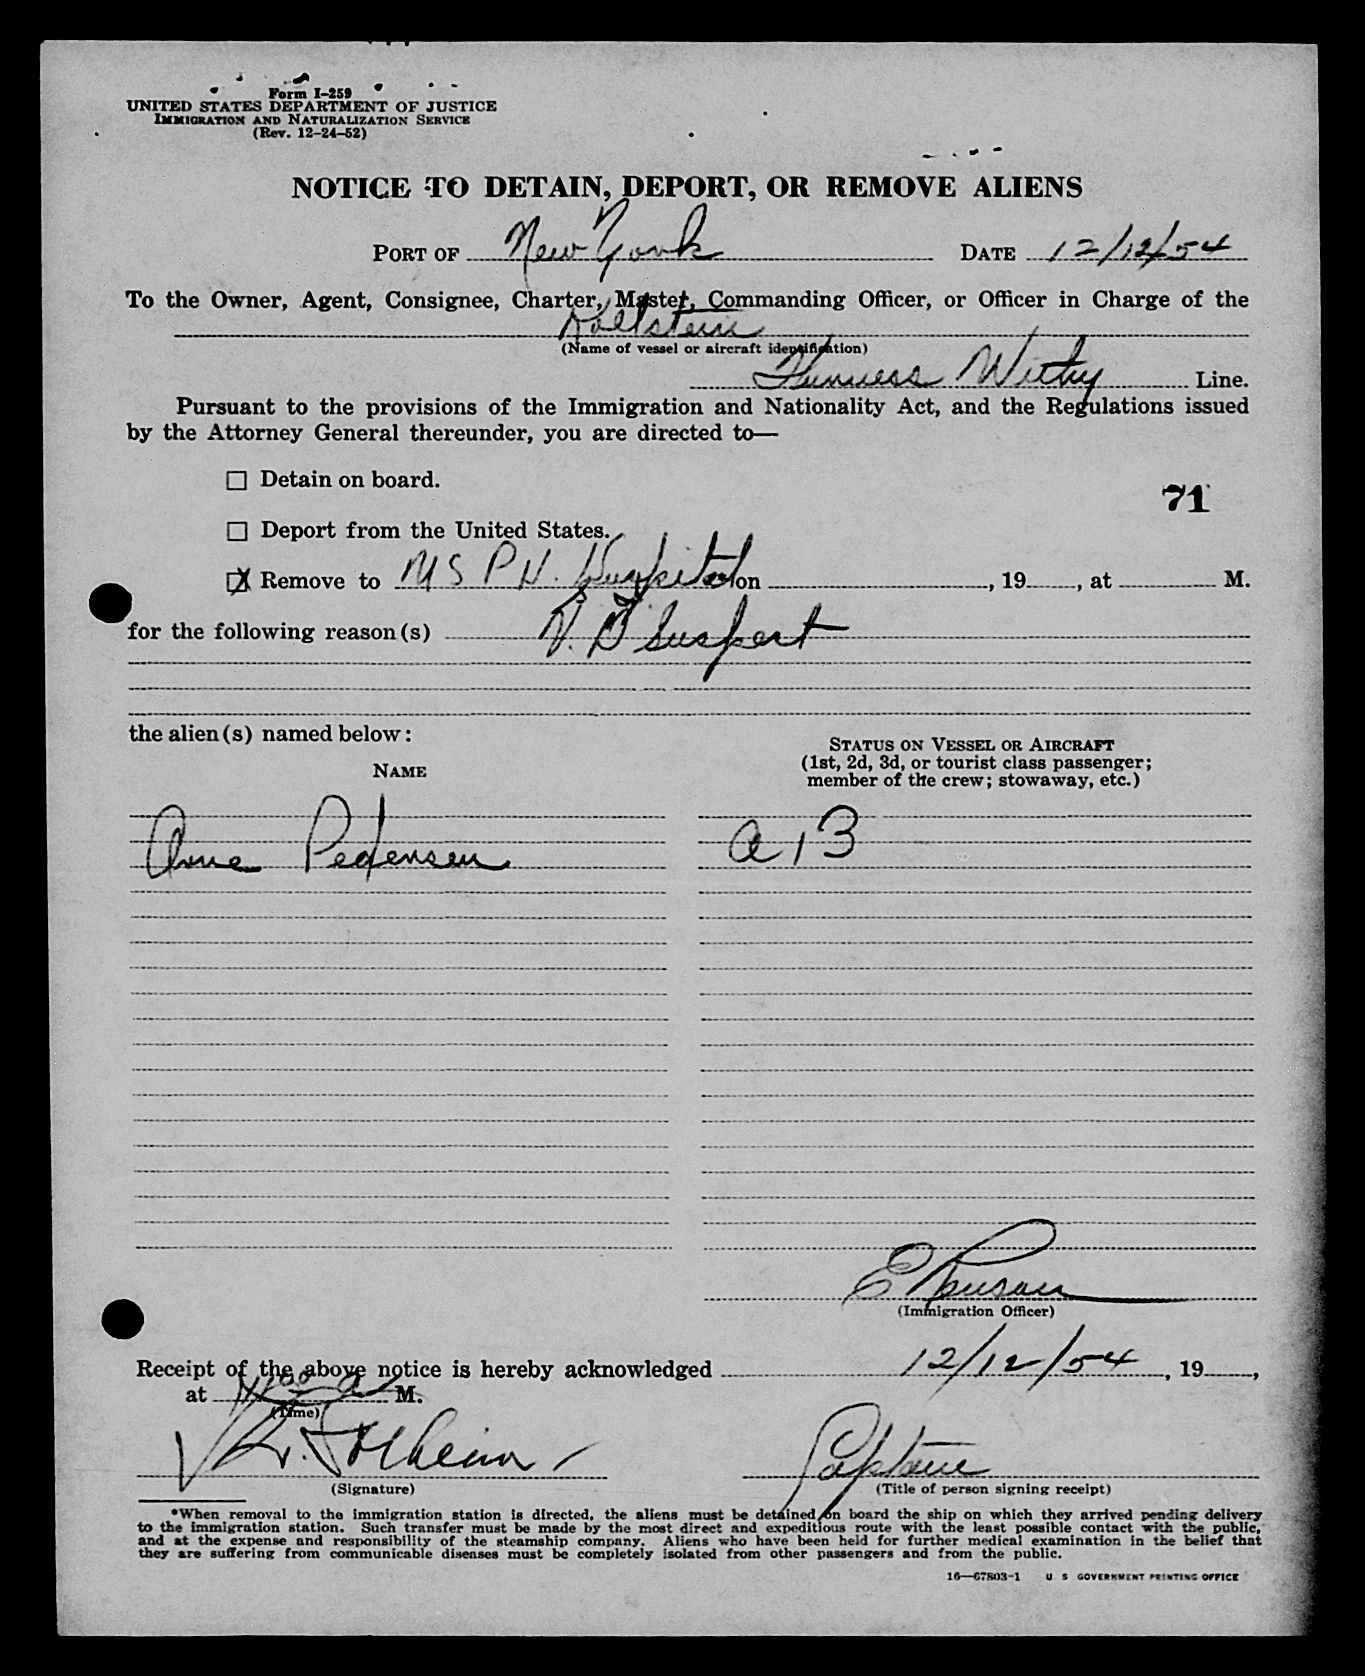 Form I-259
UNITED STATES DEPARTMENT OF JUSTICE
IMMIGRATION AND NATURALIZATION SERVICE
(Rev. 12-24-52)
NOTICE TO DETAIN, DEPORT, OR REMOVE ALIENS
PORT OF New York DATE 12/12/54
To the Owner, Agent, Consignee, Charter, Master, Commanding Officer, or Officer in Charge of the
(Name of vessel or aircraft identification)
Withy Line.
Pursuant to the provisions of the Immigration and Nationality Act, and the Regulations issued
by the Attorney General thereunder, you are directed to—
71
☐ Detain on board.
☐ Deport from the United States.
☒ Remove to Hospital on , 19 , at M.
for the following reason(s) V. D Suspect
the alien(s) named below:
NAME
STATUS ON VESSEL OR AIRCRAFT
(1st, 2d, 3d, or tourist class passenger;
member of the crew; stowaway, etc.)
Arne Pedersen
(Immigration Officer)
Receipt of the above notice is hereby acknowledged 12/12/54, 19 ,
at M.
(Time)
Captain
(Signature)
(Title of person signing receipt)
*When removal to the immigration station is directed, the aliens must be detained on board the ship on which they arrived pending delivery
to the immigration station. Such transfer must be made by the most direct and expeditious route with the least possible contact with the public,
and at the expense and responsibility of the steamship company. Aliens who have been held for further medical examination in the belief that
they are suffering from communicable diseases must be completely isolated from other passengers and from the public.
16—67803-1 U S GOVERNMENT PRINTING OFFICE